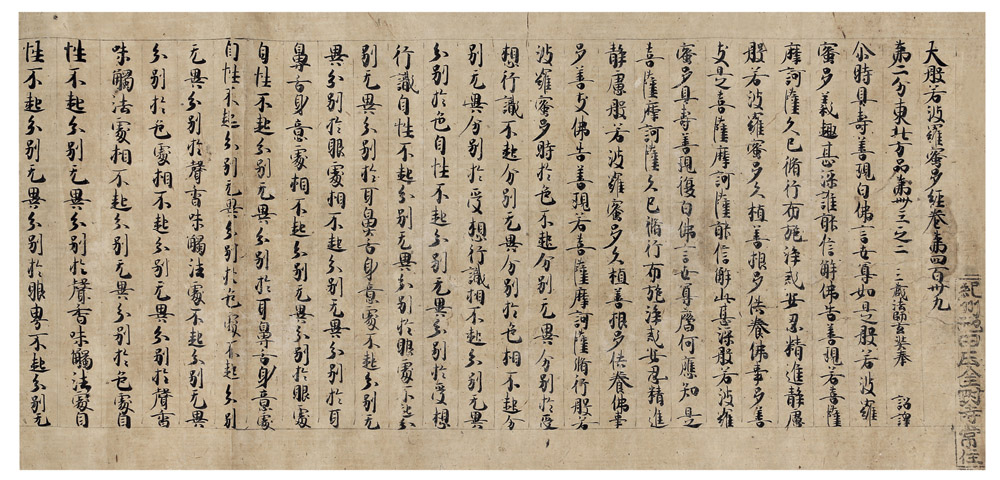 大般若波羅蜜多經卷第四百卅九
第二分東北方品第卌三之二 三藏法師玄奘奉 詔譯
尒時具壽善現白佛言世尊如是般若波羅
蜜多義趣甚深誰能信解佛告善現若菩薩
摩訶薩久已脩行布施淨戒安忍精進靜慮
般若波羅蜜多久植善根多供養佛事多善
友是菩薩摩訶薩能信解此甚深般若波羅
蜜多具壽善現復白佛言世尊齊何應知是
菩薩摩訶薩久已脩行布施淨戒安忍精進
靜慮般若波羅蜜多久植善根多供養佛事
多善友佛告善現若菩薩摩訶薩脩行般若
波羅蜜多時於色不起分別无異分別於受
想行識不起分別无異分別於色相不起分
別无異分別於受想行識相不起分別无異
分別於色自性不起分別无異分別於受想
行識自性不起分別无異分別於眼處不起分
別无異分別於耳鼻舌身意處不起分別无
異分別於眼處相不起分別无異分別於耳
鼻舌身意處相不起分別无異分別於眼處
自性不起分別无異分別於耳鼻舌身意處
自性不起分別无異分別於色處不起分別
无異分別於聲香味觸法處不起分別无異
分別於色處相不起分別无異分別於聲香
味觸法處相不起分別无異分別於色處自
性不起分別无異分別於聲香味觸法處自
性不起分別无異分別於眼界不起分別无